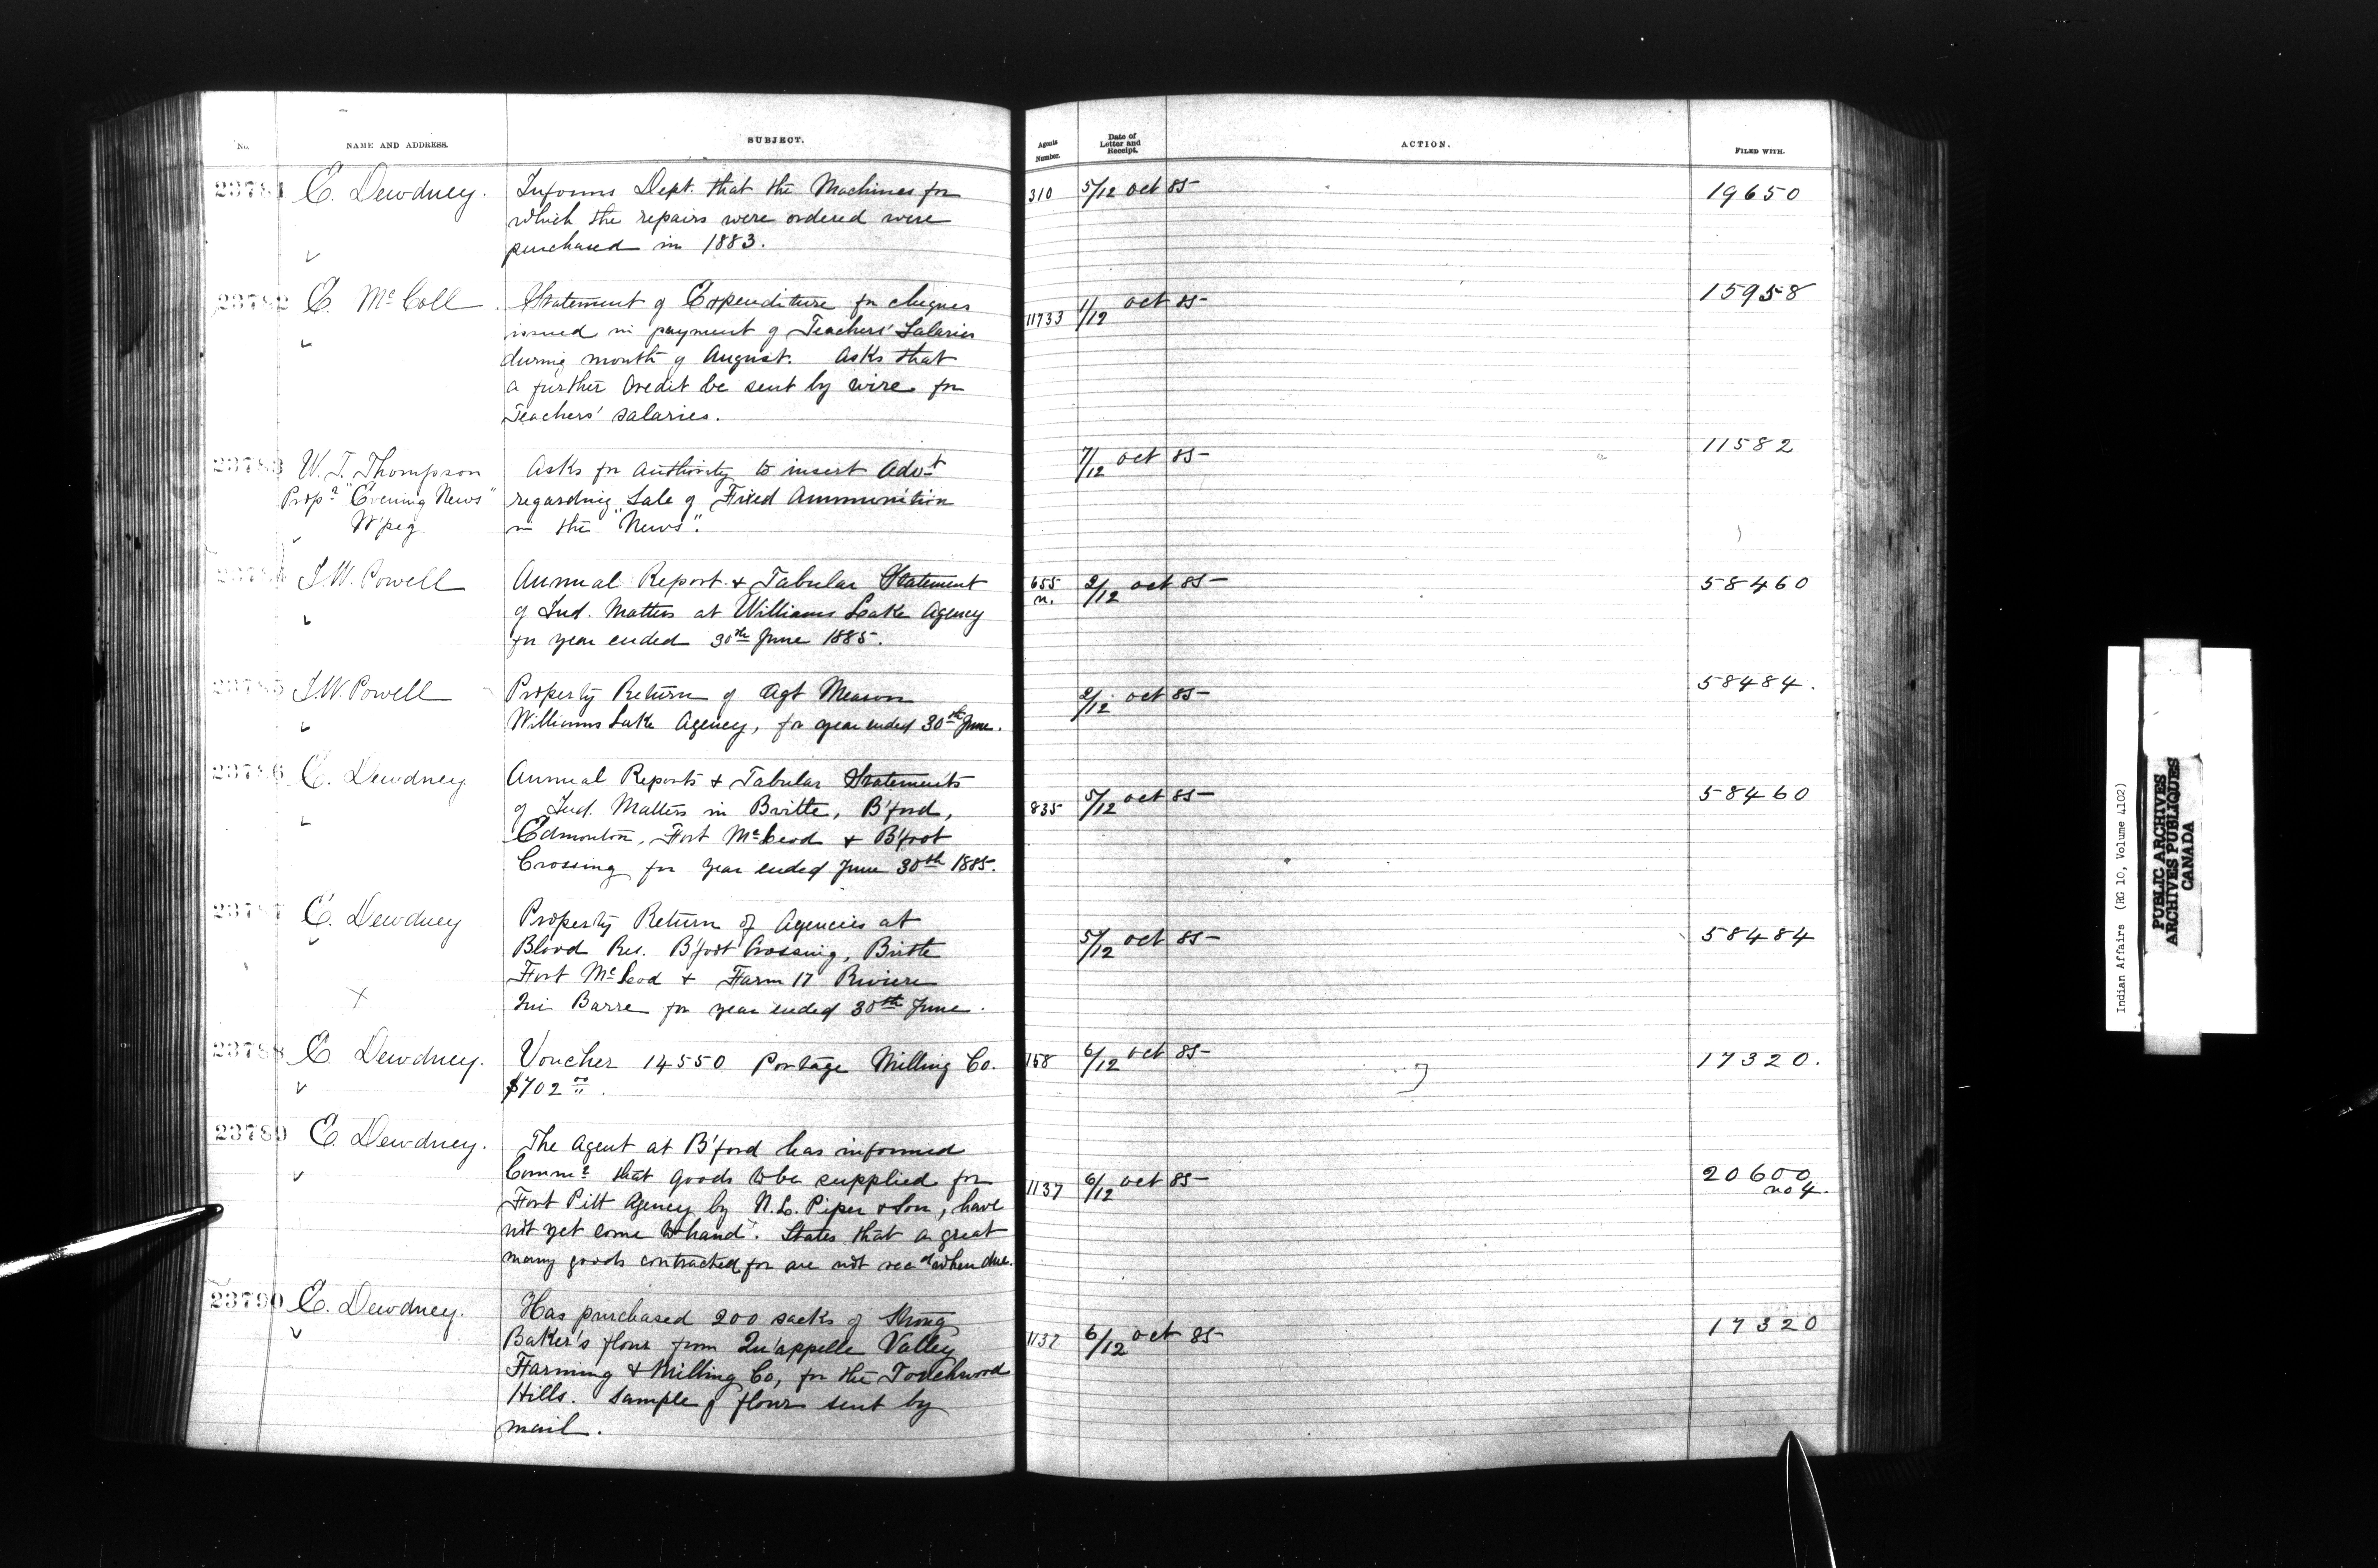 No. NAME AND ADDRESS. SUBJECT. Agents Number. Date of Letter and Receipt. ACTION. FILED WITH.
23781 E. Dewdney. Informs Dept. that the Machines for 310 5/12 Oct 85 19650
which the repairs were ordered were
purchased in 1883.
23782 E. McColl Statement of Expenditure for cheques 11733 1/12 Oct 85 15958
issued in payment of Teachers' Salaries
during month of August. Asks that
a further credit be sent by wire for
Teachers' salaries.
23783 W. T. Thompson Asks for authority to insert Advt 7/12 Oct 85 11582
Propr "Evening News" regarding Sale of Fixed Ammunition
W'peg in the "News".
23784 I. W. Powell Annual Report & Tabular Statement 655 n. 2/12 Oct 85 58460
of Ind. Matters at Williams Lake Agency
for year ended 30th June 1885.
23785 I. W. Powell Property Return of Agt Meason 2/12 Oct 85 58484.
Williams Lake Agency, for year ended 30th June.
23786 E. Dewdney Annual Reports & Tabular Statements 835 5/12 Oct 85 58460
of Ind. Matters in Birtle, B'ford,
Edmonton, Fort McLeod & B'foot
Crossing for year ended June 30th 1885.
23787 E. Dewdney Property Return of Agencies at 5/12 Oct 85 58484
Blood Res. B'foot Crossing, Birtle
Fort McLeod & Farm 17 Riviere
Qui Barre for year ended 30th June.
23788 E. Dewdney. Voucher 14550 Portage Milling Co. 158 6/12 Oct 85 17320.
$702 00.
23789 E. Dewdney. The Agent at B'ford has informed
Commr that goods to be supplied for 1137 6/12 Oct 85 20600 no 4.
Fort Pitt Agency by N. L. Piper & Son, have
not yet come to hand. States that a great
many goods contracted for are not recd when due.
23790 E. Dewdney. Has purchased 200 sacks of Strong 1137 6/12 Oct 85 17320
Baker's flour from Qu'appelle Valley
Farming & Milling Co, for the Touchwood
Hills. Sample of flour sent by
mail.
Indian Affairs (RG 10, Volume 4102)
PUBLIC ARCHIVES
ARCHIVES PUBLIQUES
CANADA